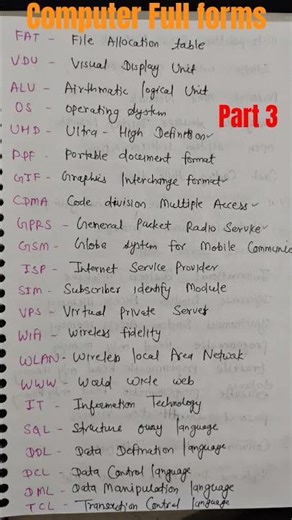 Computer Full forms
FAT - File Allocation table
VDU - Visual Display Unit
ALU - Airthmatic logical Unit
OS - operating system
Part 3
UHD - Ultra - High Definition
PDF - Portable document format
GIF - Graphics Interchange format
CDMA - Code division Multiple Access
GPRS - General Packet Radio Servke
GSM - Globa system for Mobile Communic
ISP - Internet Service Provider
SIM - Subscriber identify Module
VPS - Virtual Private Server
Wifi - Wireless fidelity
WLAN - Wireless local Area Netwok
WWW - World wide web
IT - Information Technology
SQL - Structure quay language
DDL - Data Defination language
DCL - Data Control language
DML - Data Manipulation language
TCL - Transection Control language